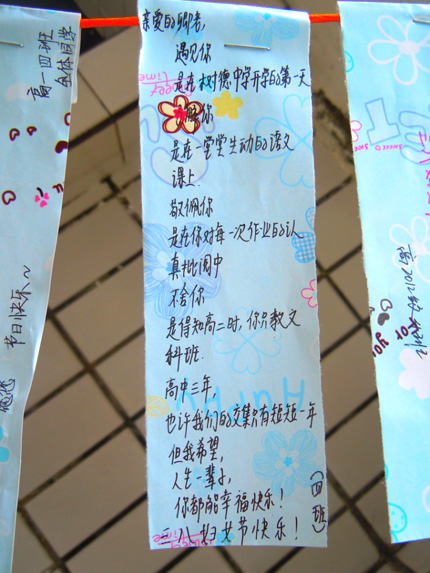 亲爱的邹老,
遇见你
是在树德中学开学的第一天
了解你
是在一堂堂生动的语文
课上.
敬佩你
是在你对每一次作业的认
真批阅中
不舍你
是得知高二时,你只教文
科班.
高中三年,
也许我们的交集只有短短一年
但我希望,
人生一辈子,
你都能幸福快乐!
三八妇女节快乐!
(四班)
高一四班
全体同学
节日快乐~